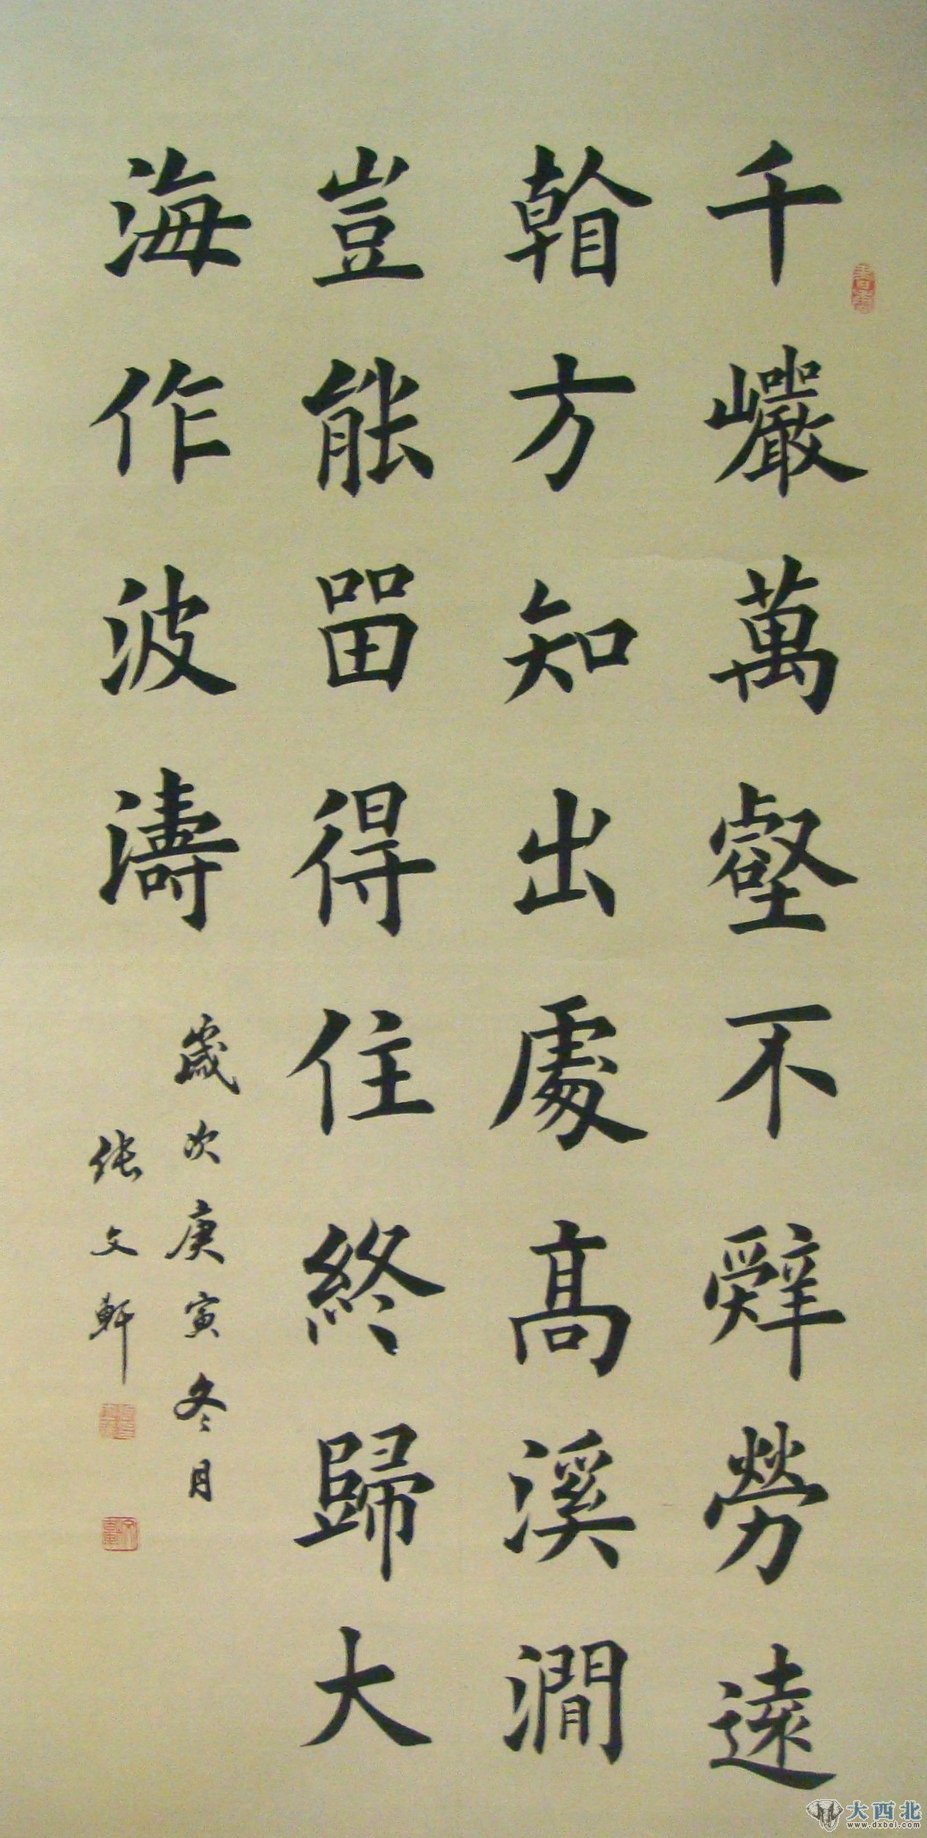 千巖萬壑不辤勞遠
㫮方知出處高溪澗
豈能畱得住終歸大
海作波濤
歲次庚寅冬月
张文軒
大西北
www.dxbei.com